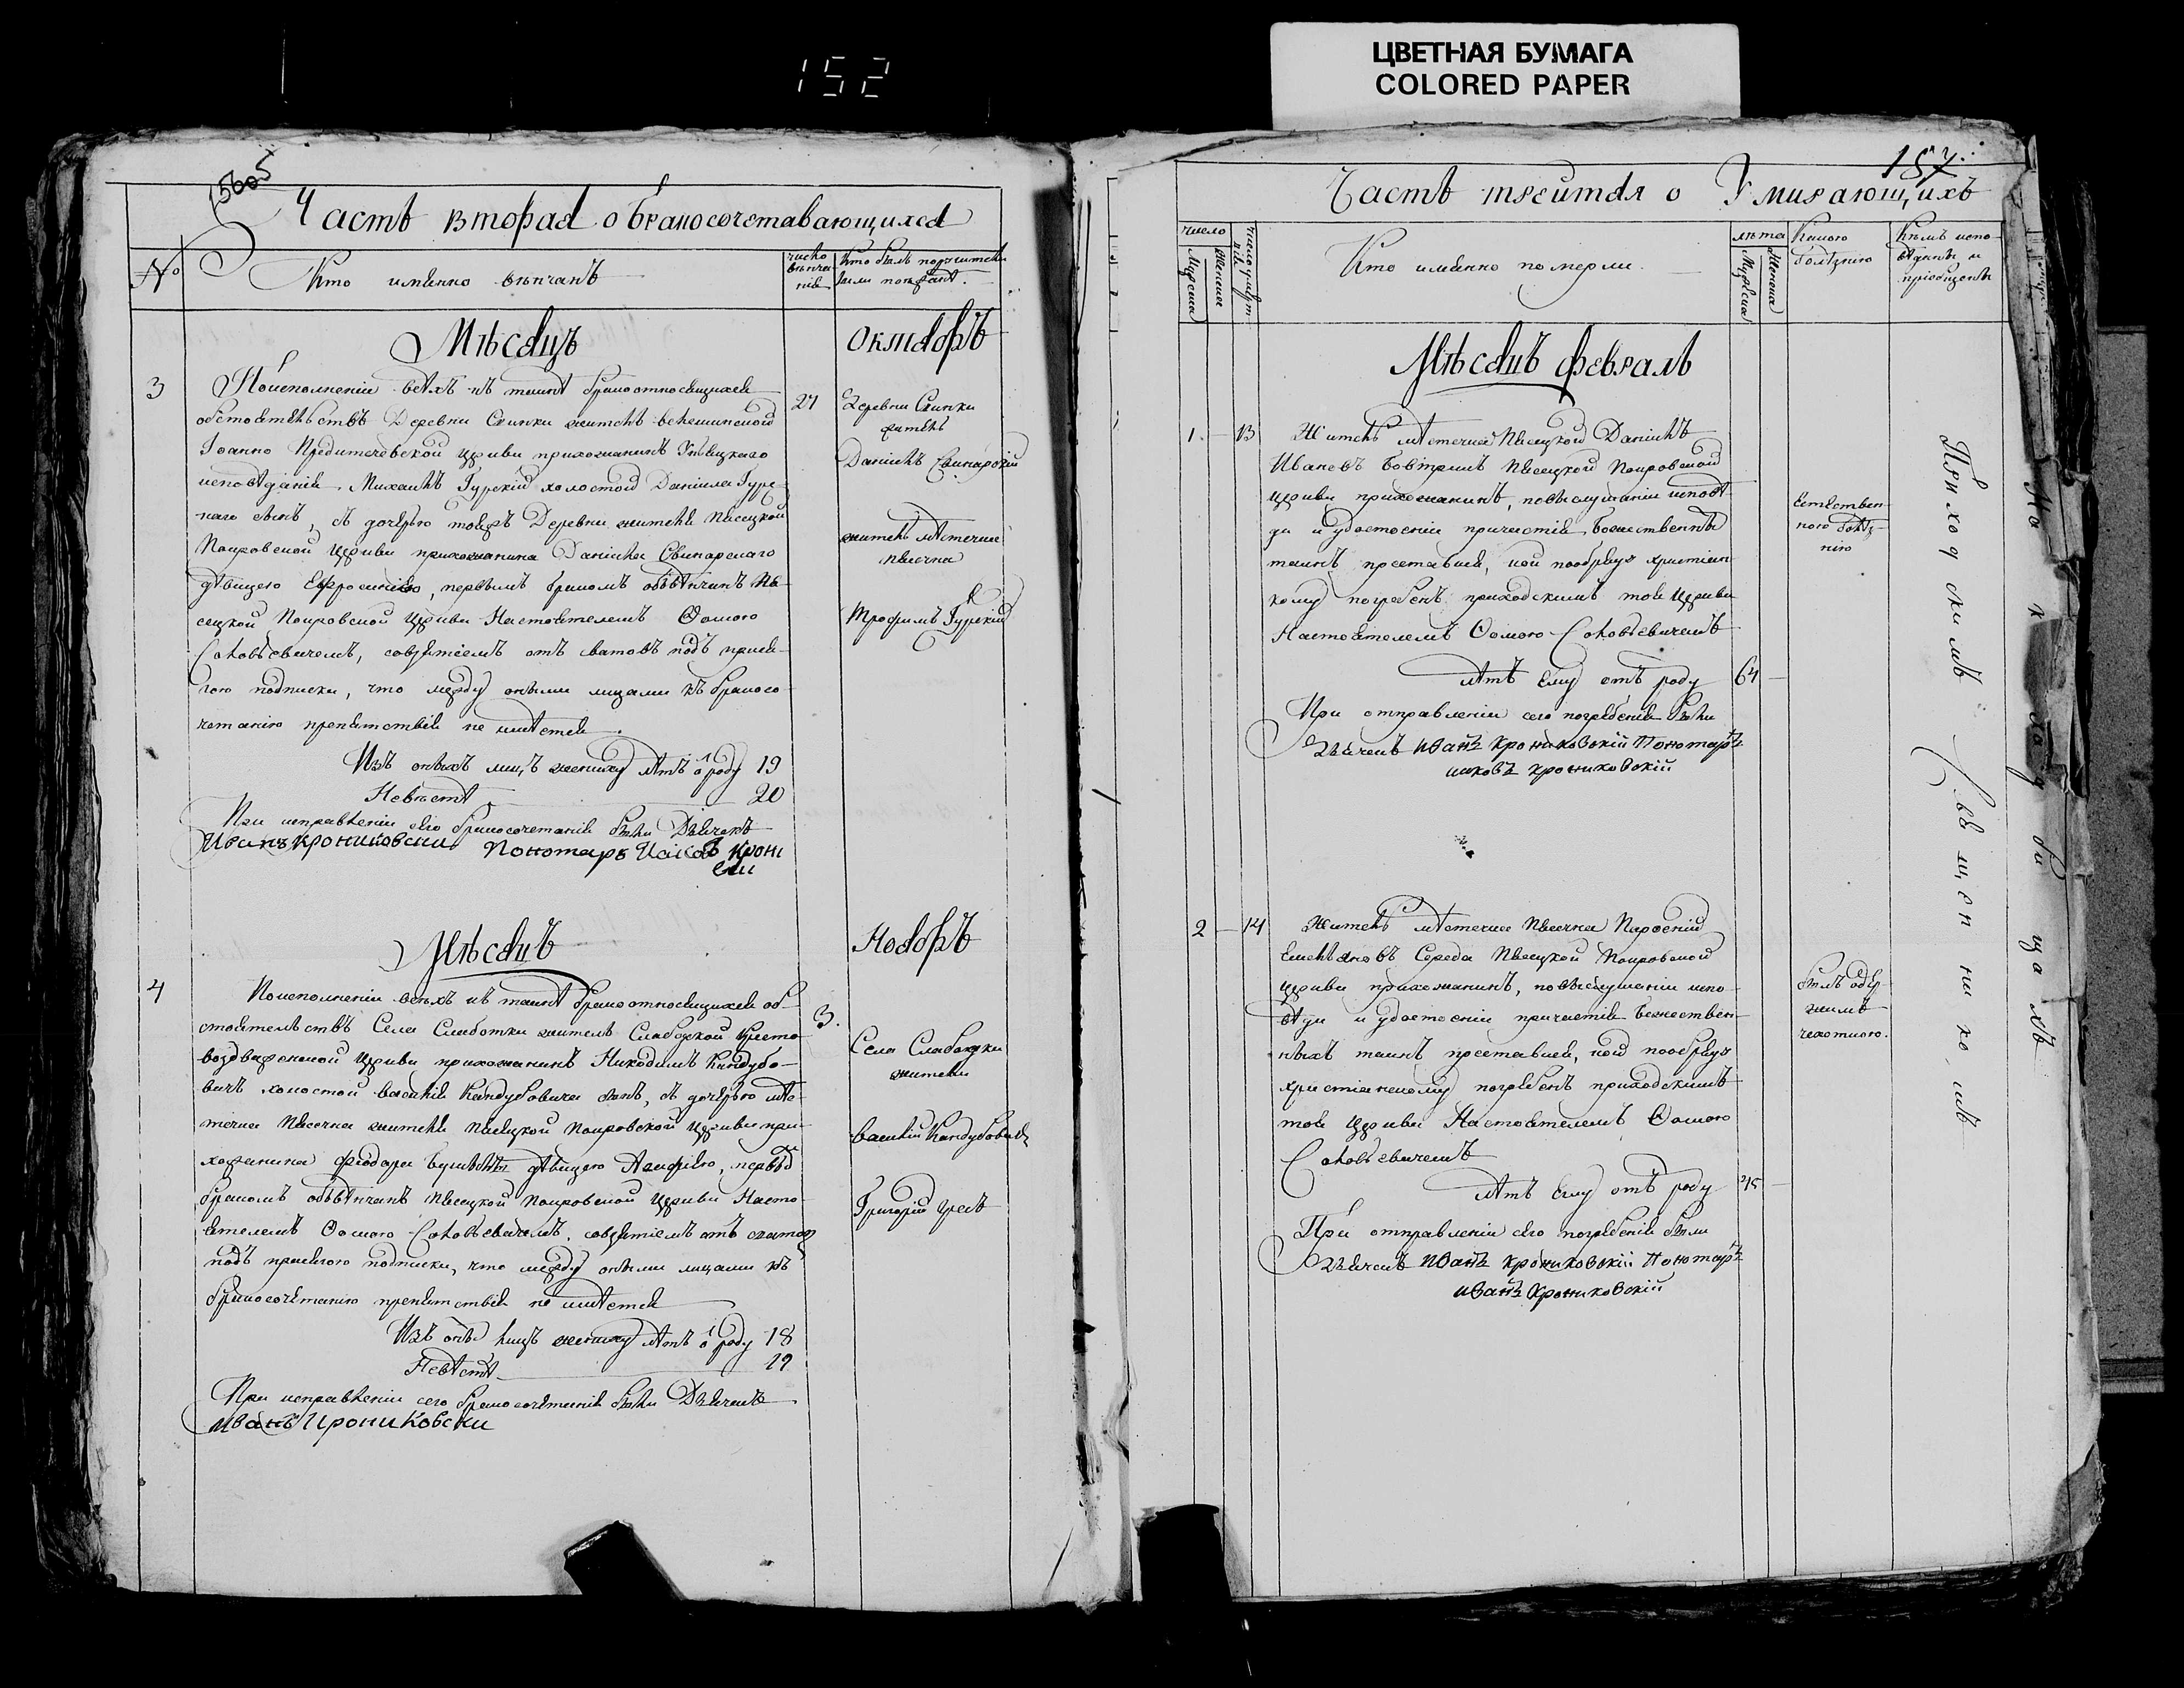 152
ЦВЕТНАЯ БУМАГА
COLORED PAPER
Часть вторая о бракосочетавающихся
№
Кто имянно вѣнчанъ
число вѣнчанія
Кто былъ поручителемъ или поѣзжане.
Мѣсяцъ Октябрь
3
По исполненіи всѣхъ къ таинѣ брака относящихся
обстоятельствъ Деревни житель
Іоанно Предитечевской Церкви прихожанинъ
исповѣданія Михаилъ Гурскій холостой Даніила Гурс-
каго сынъ, съ дочерью тоейжъ Деревни жителя Пѣсецкой
Покровской Церкви прихожанина Даніила Свинарскаго
дѣвицею Ефросиніею, первымъ бракомъ обвѣнчанъ Пѣ-
сецкой Покровской Церкви Настоятелемъ Ѳомою
Соловьевичемъ, совзятіемъ отъ сватовъ подъ прися-
гою подписки, что между оными лицами къ бракосо-
четанію препятствія не имѣется.
Изъ оныхъ лицъ жениху лѣтъ о роду 19
Невѣстѣ 20
При исправленіи сего бракосочетанія были Дьячекъ
Иванъ Крониковски Пономарь
27
Деревни
житель
Даніилъ Свинарскій
житель мѣстечка
Пѣсечна
Трофимъ Гурскій
Мѣсяцъ Ноябрь
4
По исполненіи всѣхъ къ таинѣ брака относящихся об-
стоятельствъ Села житель Кресто
воздвиженской Церкви прихожанинъ Никодимъ Кандубо-
вичъ холостой Василія Кандубовича сынъ, съ дочерью мѣс-
течка Пѣсечна жителя Пѣсецкой Покровской Церкви при-
хожанина Фіодара дѣвицею первымъ
бракомъ обвѣнчанъ Пѣсецкой Покровской Церкви Насто-
ятелемъ Ѳомою Соловьевичемъ, совзятіемъ отъ сватовъ
подъ присягою подписки, что между оными лицами къ
бракосочетанію препятствія не имѣется
Изъ оныхъ лицъ жениху лѣтъ о роду 18
Невѣстѣ 19
При исправленіи сего бракосочетанія были Дьячекъ
Иванъ Крониковски
3.
Села
жители
Василій Кандубовичъ
Григорій
Часть третія о Умирающихъ
число
Мужеска
Женска
Кто имянно померли.
лѣта
Мужеска
Женска
Какою болѣзнію
Кѣмъ исповѣданы и пріобщены
Мѣсяцъ Февраль
1. 13
Житель мѣстечка Пѣсецкой Даніилъ
Ивановъ Пѣсецкой Покровской
Церкви прихожанинъ, по выслушаніи исповѣ-
ди и удостоеніи причастія Божественныхъ
таинъ преставися, кой по обряду христіан-
скому погребенъ приходскимъ той Церкви
Настоятелемъ Ѳомою Соловьевичемъ
лѣтъ Ему отъ роду 64
При отправленіи сего погребенія были
Дьячекъ Иванъ Крониковскій Пономарь
Крониковскій
Естествен-
ною болѣз-
нію
2 14
Житель мѣстечка Пѣсечна
Емельяновъ Середа Пѣсецкой Покровской
Церкви прихожанинъ, по выслушаніи испо-
вѣди и удостоеніи причастія Божествен-
ныхъ таинъ преставися, кой по обряду
христіанскому погребенъ приходскимъ
той Церкви Настоятелемъ Ѳомою
Соловьевичемъ
лѣтъ Ему отъ роду 45
При отправленіи сего погребенія были
Дьячекъ Иванъ Крониковскій Пономарь
Иванъ Крониковскій
былъ одер-
жимъ
чахоткою.
Приходскимъ Священникомъ
На кладбищахъ